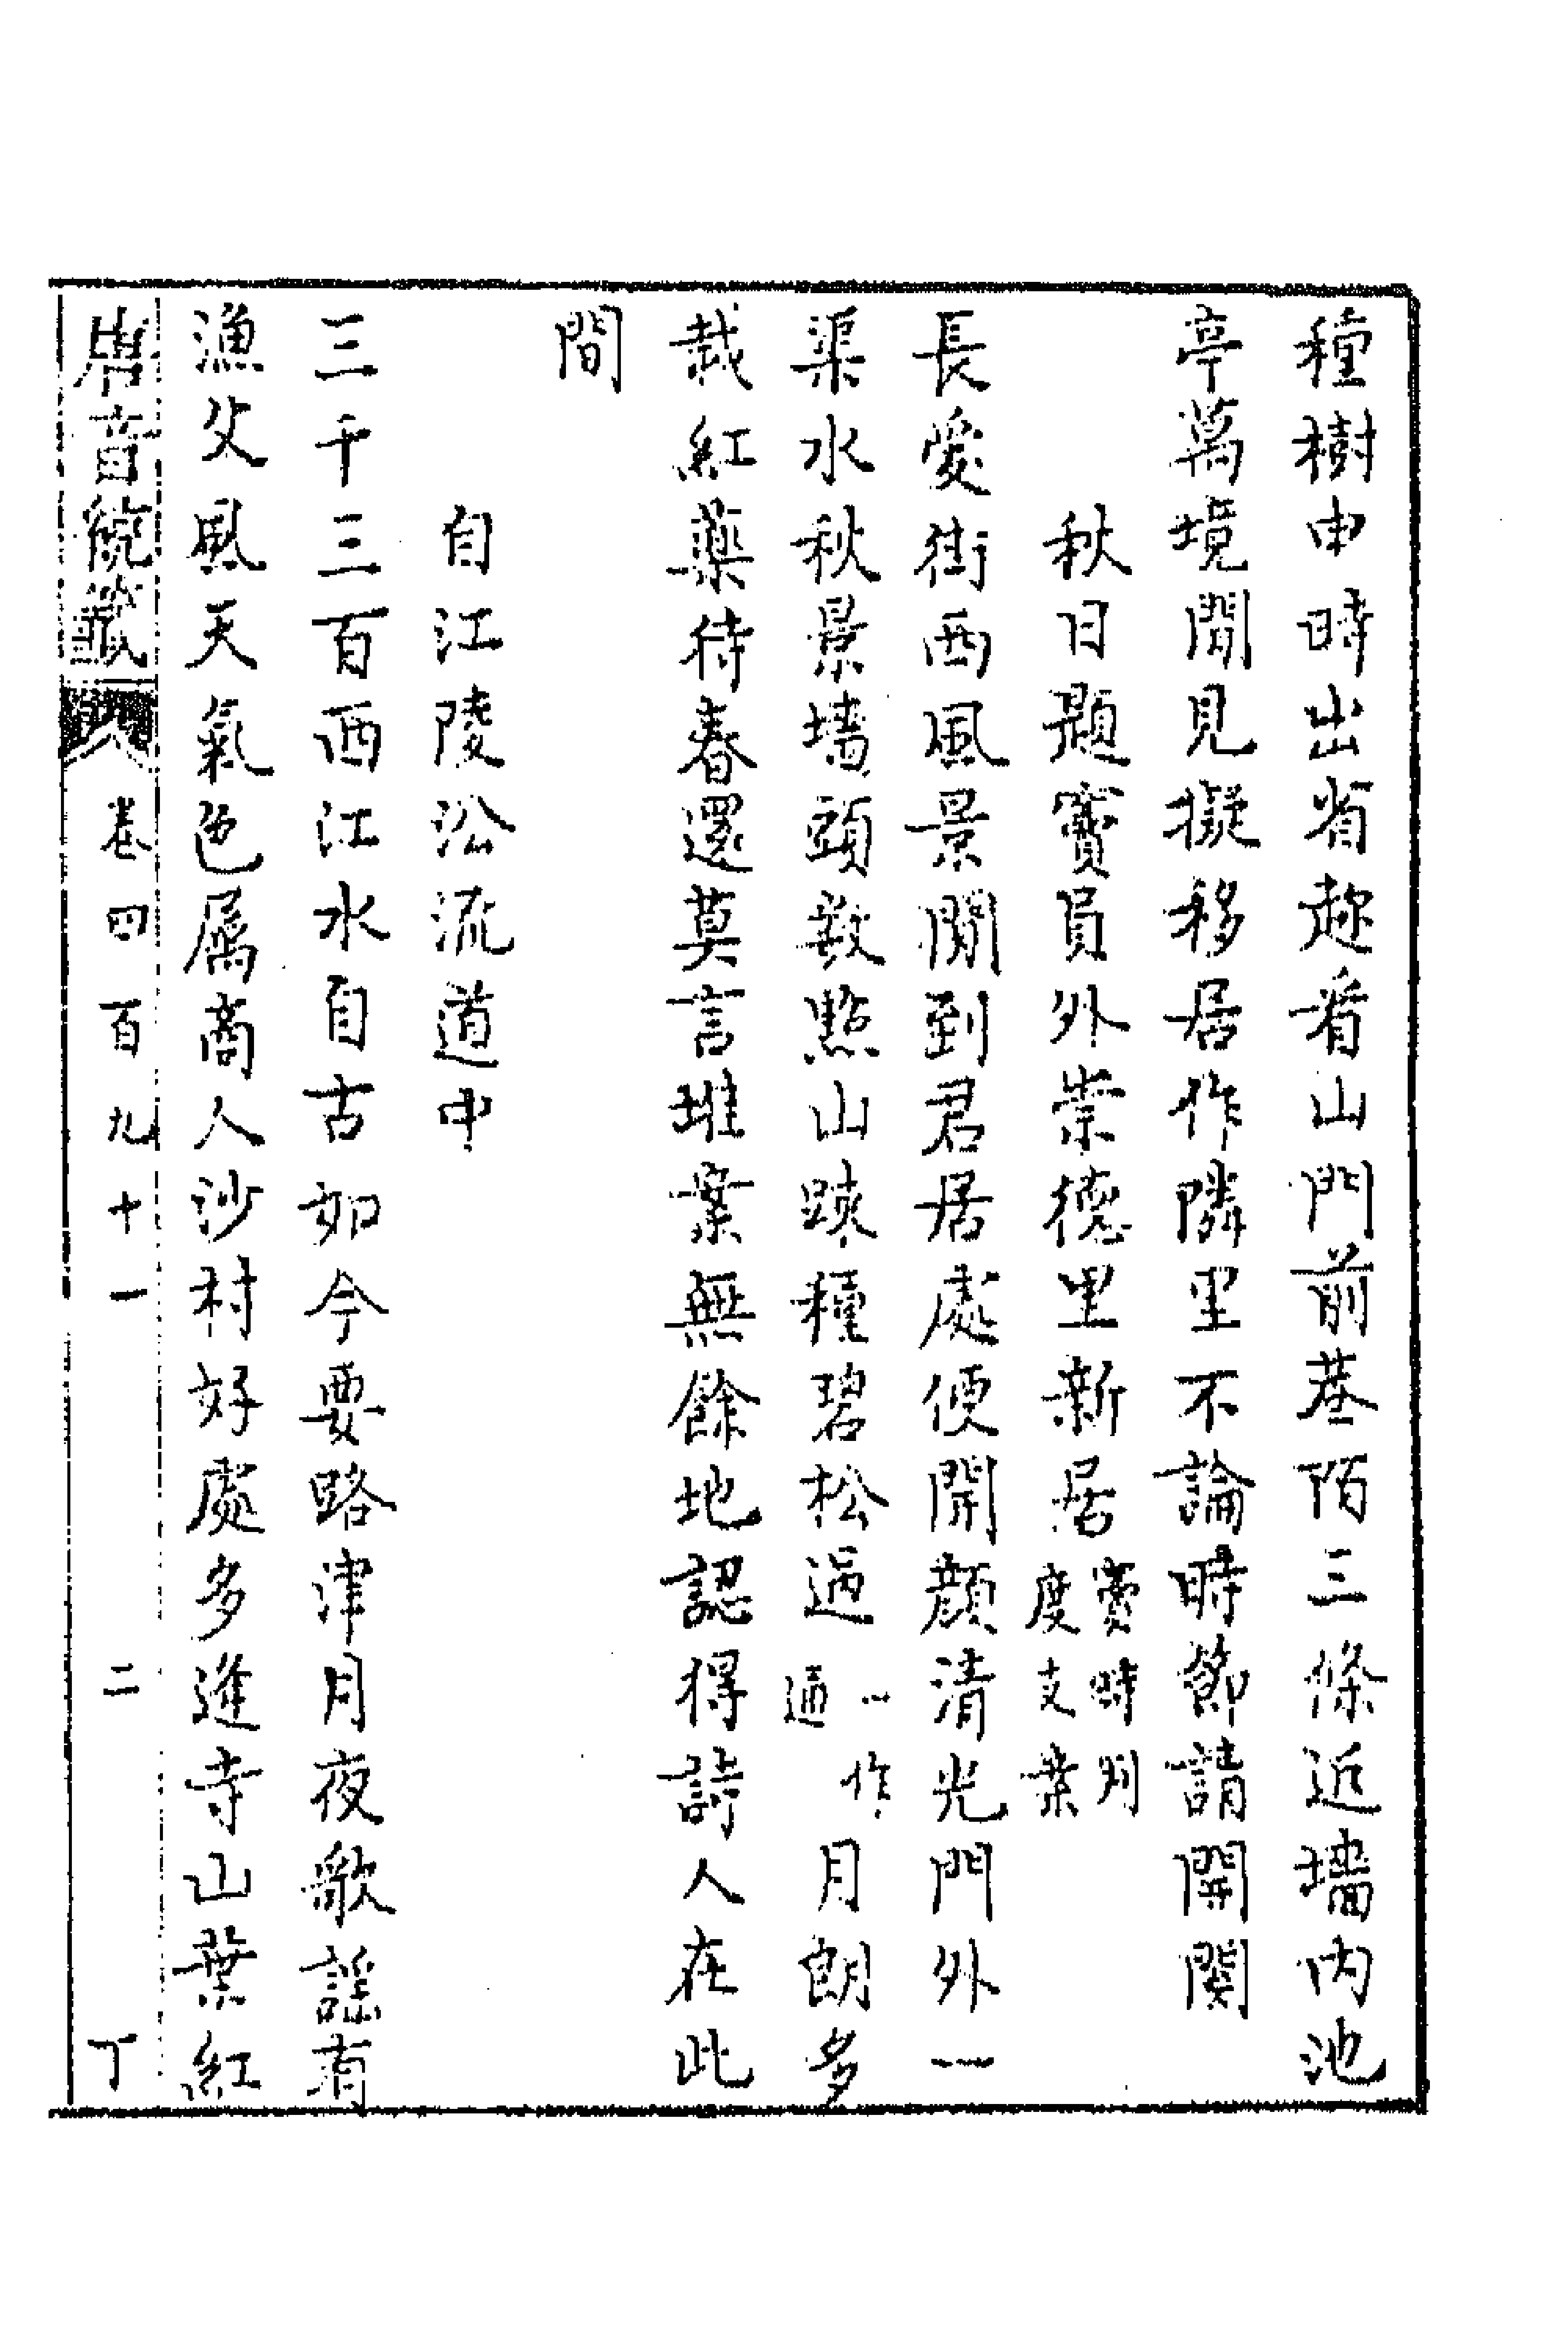 種樹申時出省趂看山門前巷陌三條近墻内池
亭萬境閒見擬移居作隣里不論時節請開関
秋日題竇員外崇德里新居竇時判度支案
長愛街西風景閒到君居處便開顔清光門外一
渠水秋景墻頭數點山踈種碧松過一作通月朗多
栽紅藥待春還莫言堆案無餘地認得詩人在此
間
自江陵㳂流道中
三千三百西江水自古如今要路津月夜歌謡有
漁父風天氣色属商人沙村好處多逢寺山葉紅
唐音統籖
卷四百九十一
二
丁